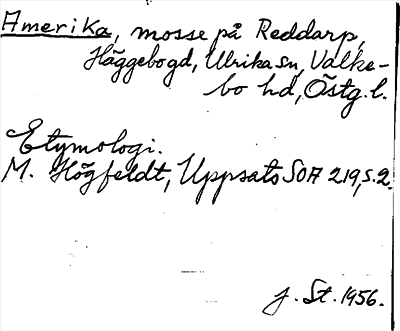 Amerika, mosse på Reddarp,
Häggebo gd, Ulrika sn, Valke-
bo hd, Östg. l.
Etymologi.
M. Högfeldt, Uppsats SOA 219, s. 2.
J. St. 1956.